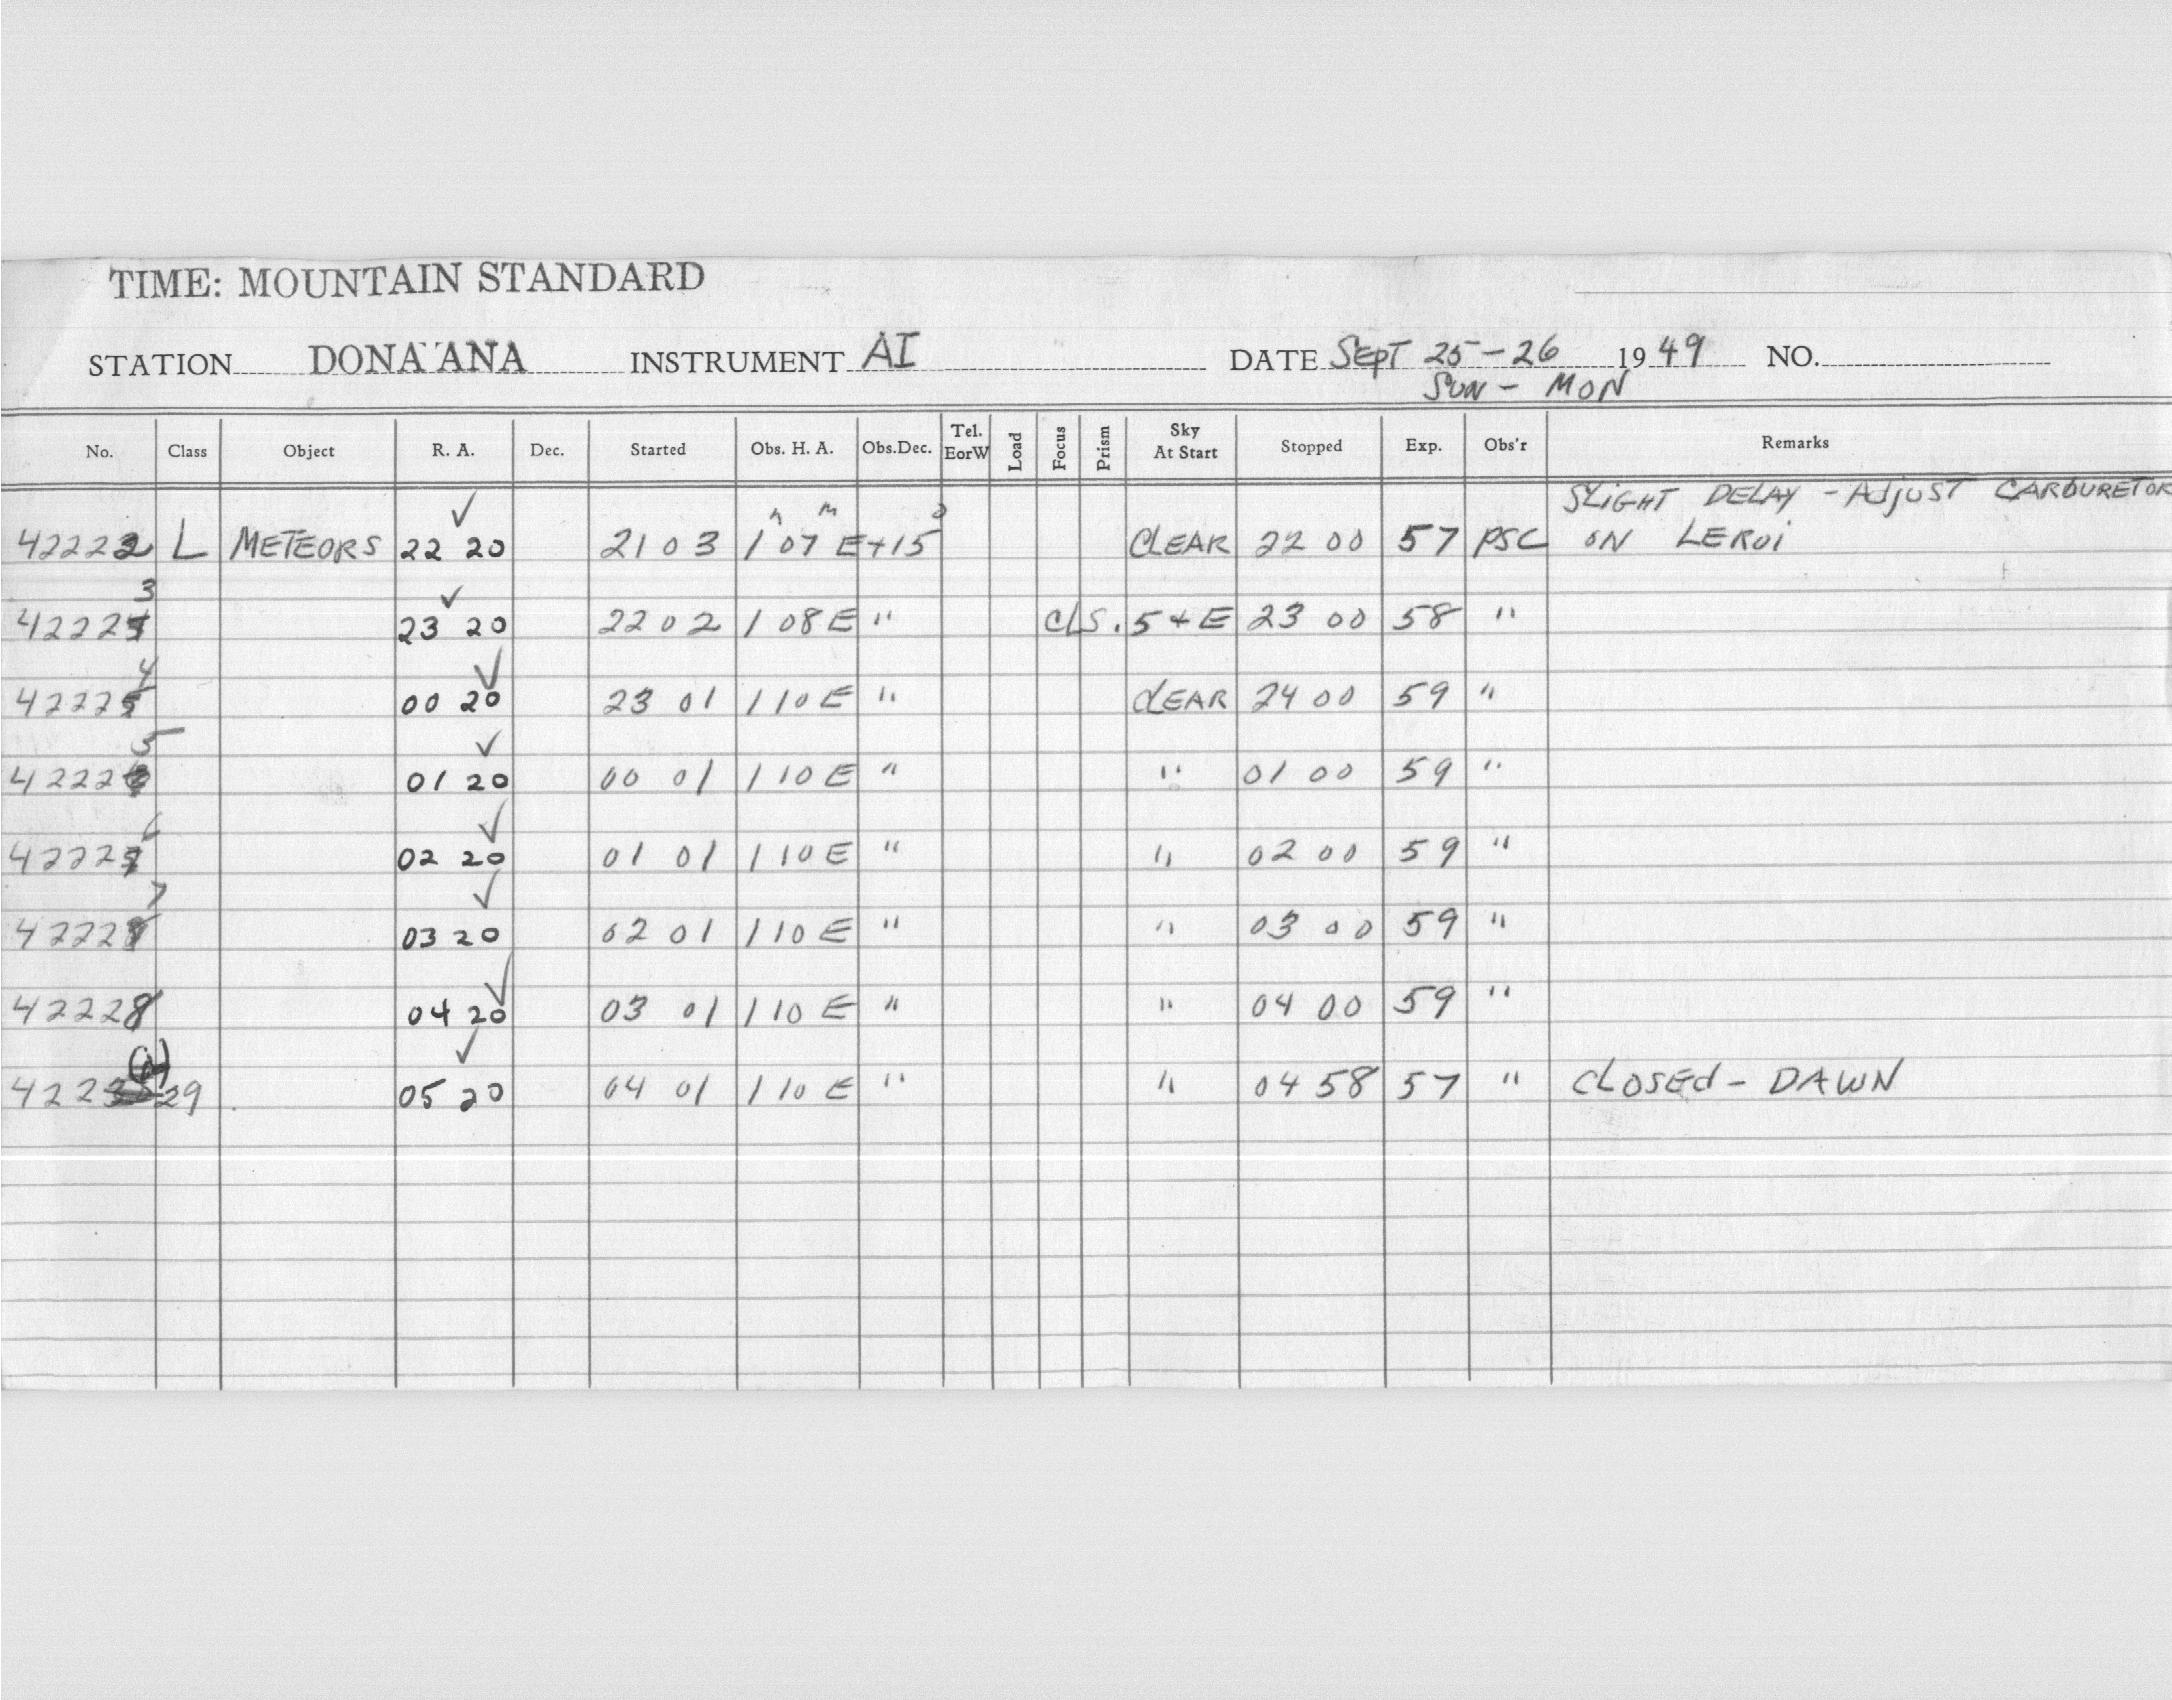 TIME: MOUNTAIN STANDARD
STATION DONA ANA INSTRUMENT AI DATE SEPT 25-26 1949 NO.
SUN - MON
No. Class Object R. A. Dec. Started Obs. H. A. Obs.Dec. Tel. EorW Load Focus Prism Sky At Start Stopped Exp. Obs'r Remarks
SLIGHT DELAY - AdjUST CARBURETOR
42222 L METEORS 22 20 ✓ 21 03 1h 07m E +15° CLEAR 22 00 57 PSC ON LEROi
42223 23 20 ✓ 22 02 1 08 E " CLS. S + E 23 00 58 "
42224 00 20 ✓ 23 01 1 10 E " CLEAR 24 00 59 "
42225 01 20 ✓ 00 01 1 10 E " " 01 00 59 "
42226 02 20 ✓ 01 01 1 10 E " " 02 00 59 "
42227 03 20 ✓ 02 01 1 10 E " " 03 00 59 "
42228 04 20 ✓ 03 01 1 10 E " " 04 00 59 "
422 29 05 20 ✓ 04 01 1 10 E " " 04 58 57 " CLOSEd - DAWN